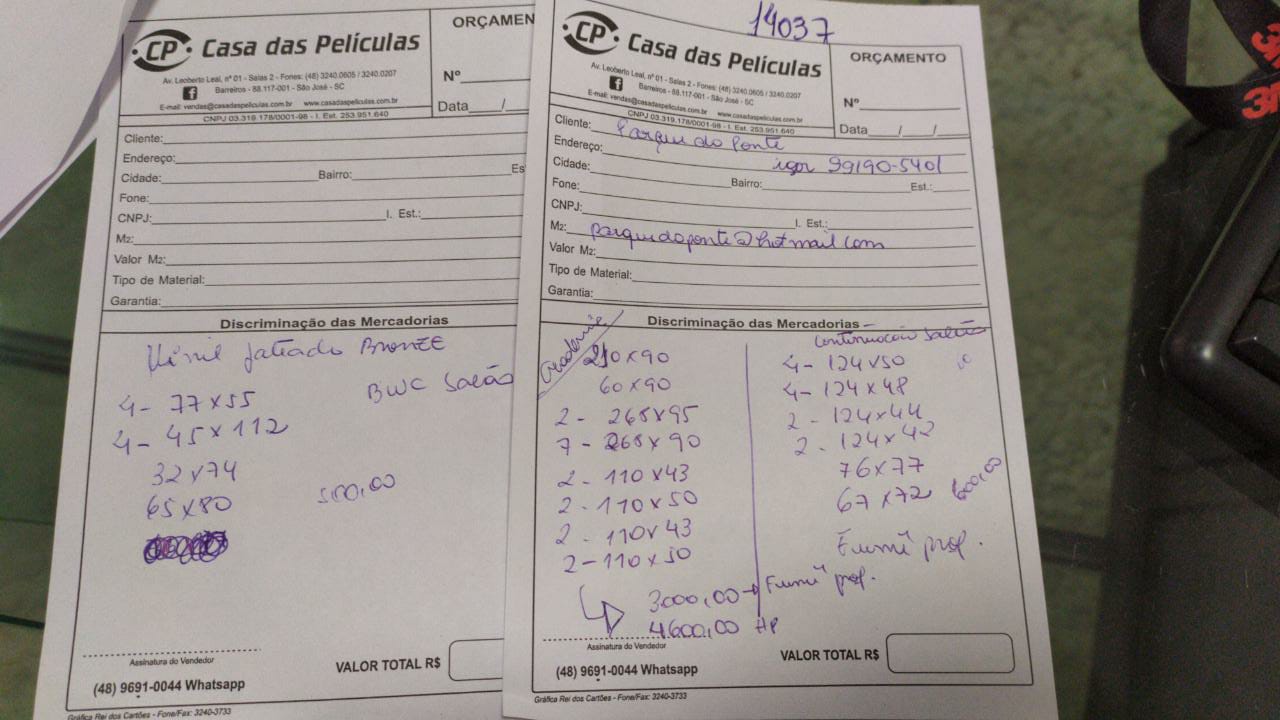 CP Casa das Películas
Av. Leoberto Leal, nº 01 - Salas 2 - Fones: (48) 3240.0605 / 3240.0207
Barreiros - 88.117-001 - São José - SC
E-mail: vendas@casadaspeliculas.com.br www.casadaspeliculas.com.br
CNPJ 03.319.178/0001-98 - I. Est. 253.951.640
ORÇAMEN
Nº
Data / 
Cliente:
Endereço:
Cidade: Bairro: Es
Fone:
CNPJ: I. Est.:
M2:
Valor M2:
Tipo de Material:
Garantia:
Discriminação das Mercadorias
Vinil jateado BRONZE
BWC Salão
4- 77x55
4- 45x112
32x74
65x80 500,00
Assinatura do Vendedor
VALOR TOTAL R$
(48) 9691-0044 Whatsapp
Gráfica Rei dos Cartões - Fone/Fax: 3240-3733
14037
CP Casa das Películas
Av. Leoberto Leal, nº 01 - Salas 2 - Fones: (48) 3240.0605 / 3240.0207
Barreiros - 88.117-001 - São José - SC
E-mail: vendas@casadaspeliculas.com.br www.casadaspeliculas.com.br
CNPJ 03.319.178/0001-98 - I. Est. 253.951.640
ORÇAMENTO
Nº
Data / /
Cliente: Parque do Ponte
Endereço: igor 99190-5401
Cidade: Bairro: Est.:
Fone:
CNPJ: I. Est.:
M2: parquedoponte@hotmail.com
Valor M2:
Tipo de Material:
Garantia:
Discriminação das Mercadorias
Academia
210x90
60x90
2 - 268x95
7 - 268x90
2 - 110x43
2 - 110x50
2 - 110x43
2 - 110x50
3000,00 → Fumê prof.
4600,00 HP
Continuação Salão
4- 124x50
4- 124x48
2 - 124x44
2 - 124x42
76x77
67x72 600,00
Fumê prof.
Assinatura do Vendedor
VALOR TOTAL R$
(48) 9691-0044 Whatsapp
Gráfica Rei dos Cartões - Fone/Fax: 3240-3733
3M